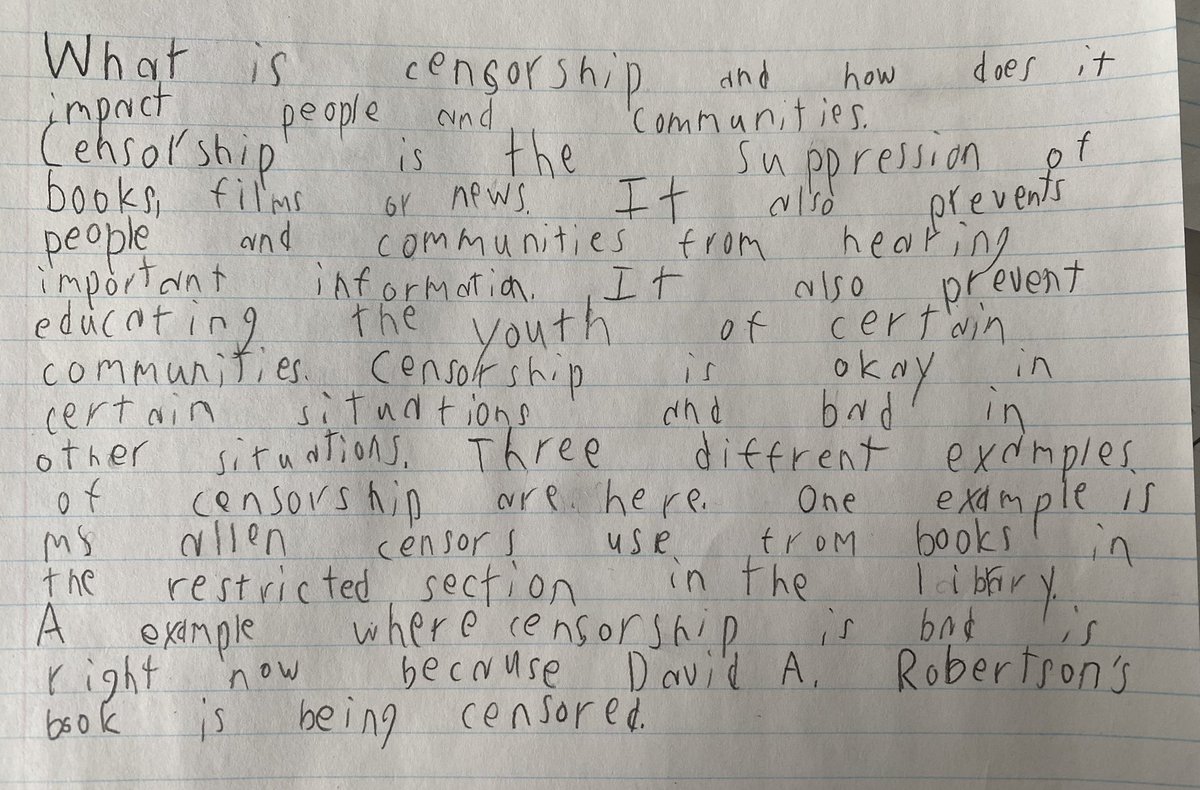 What is censorship and how does it
impact people and communities.
Censorship is the suppression of
books, films or news. It also prevents
people and communities from hearing
important information. It also prevent
educating the youth of certain
communities. Censorship is okay in
certain situations and bad in
other situations. Three diffrent examples
of censorship are here. One example is
ms allen censors use from books in
the restricted section in the library.
A example where censorship is bad is
right now because David A. Robertson's
book is being censored.